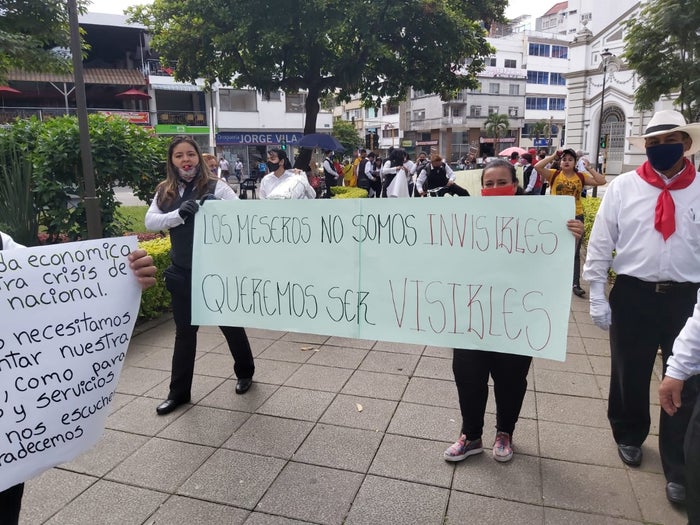 JORGE VILA
LOS MESEROS NO SOMOS INVISIBLES
QUEREMOS SER VISIBLES
da economica
tra crisis de
nacional.
os necesitamos
ntar nuestra
, como para
s y servicios
nos escuche
radecemos